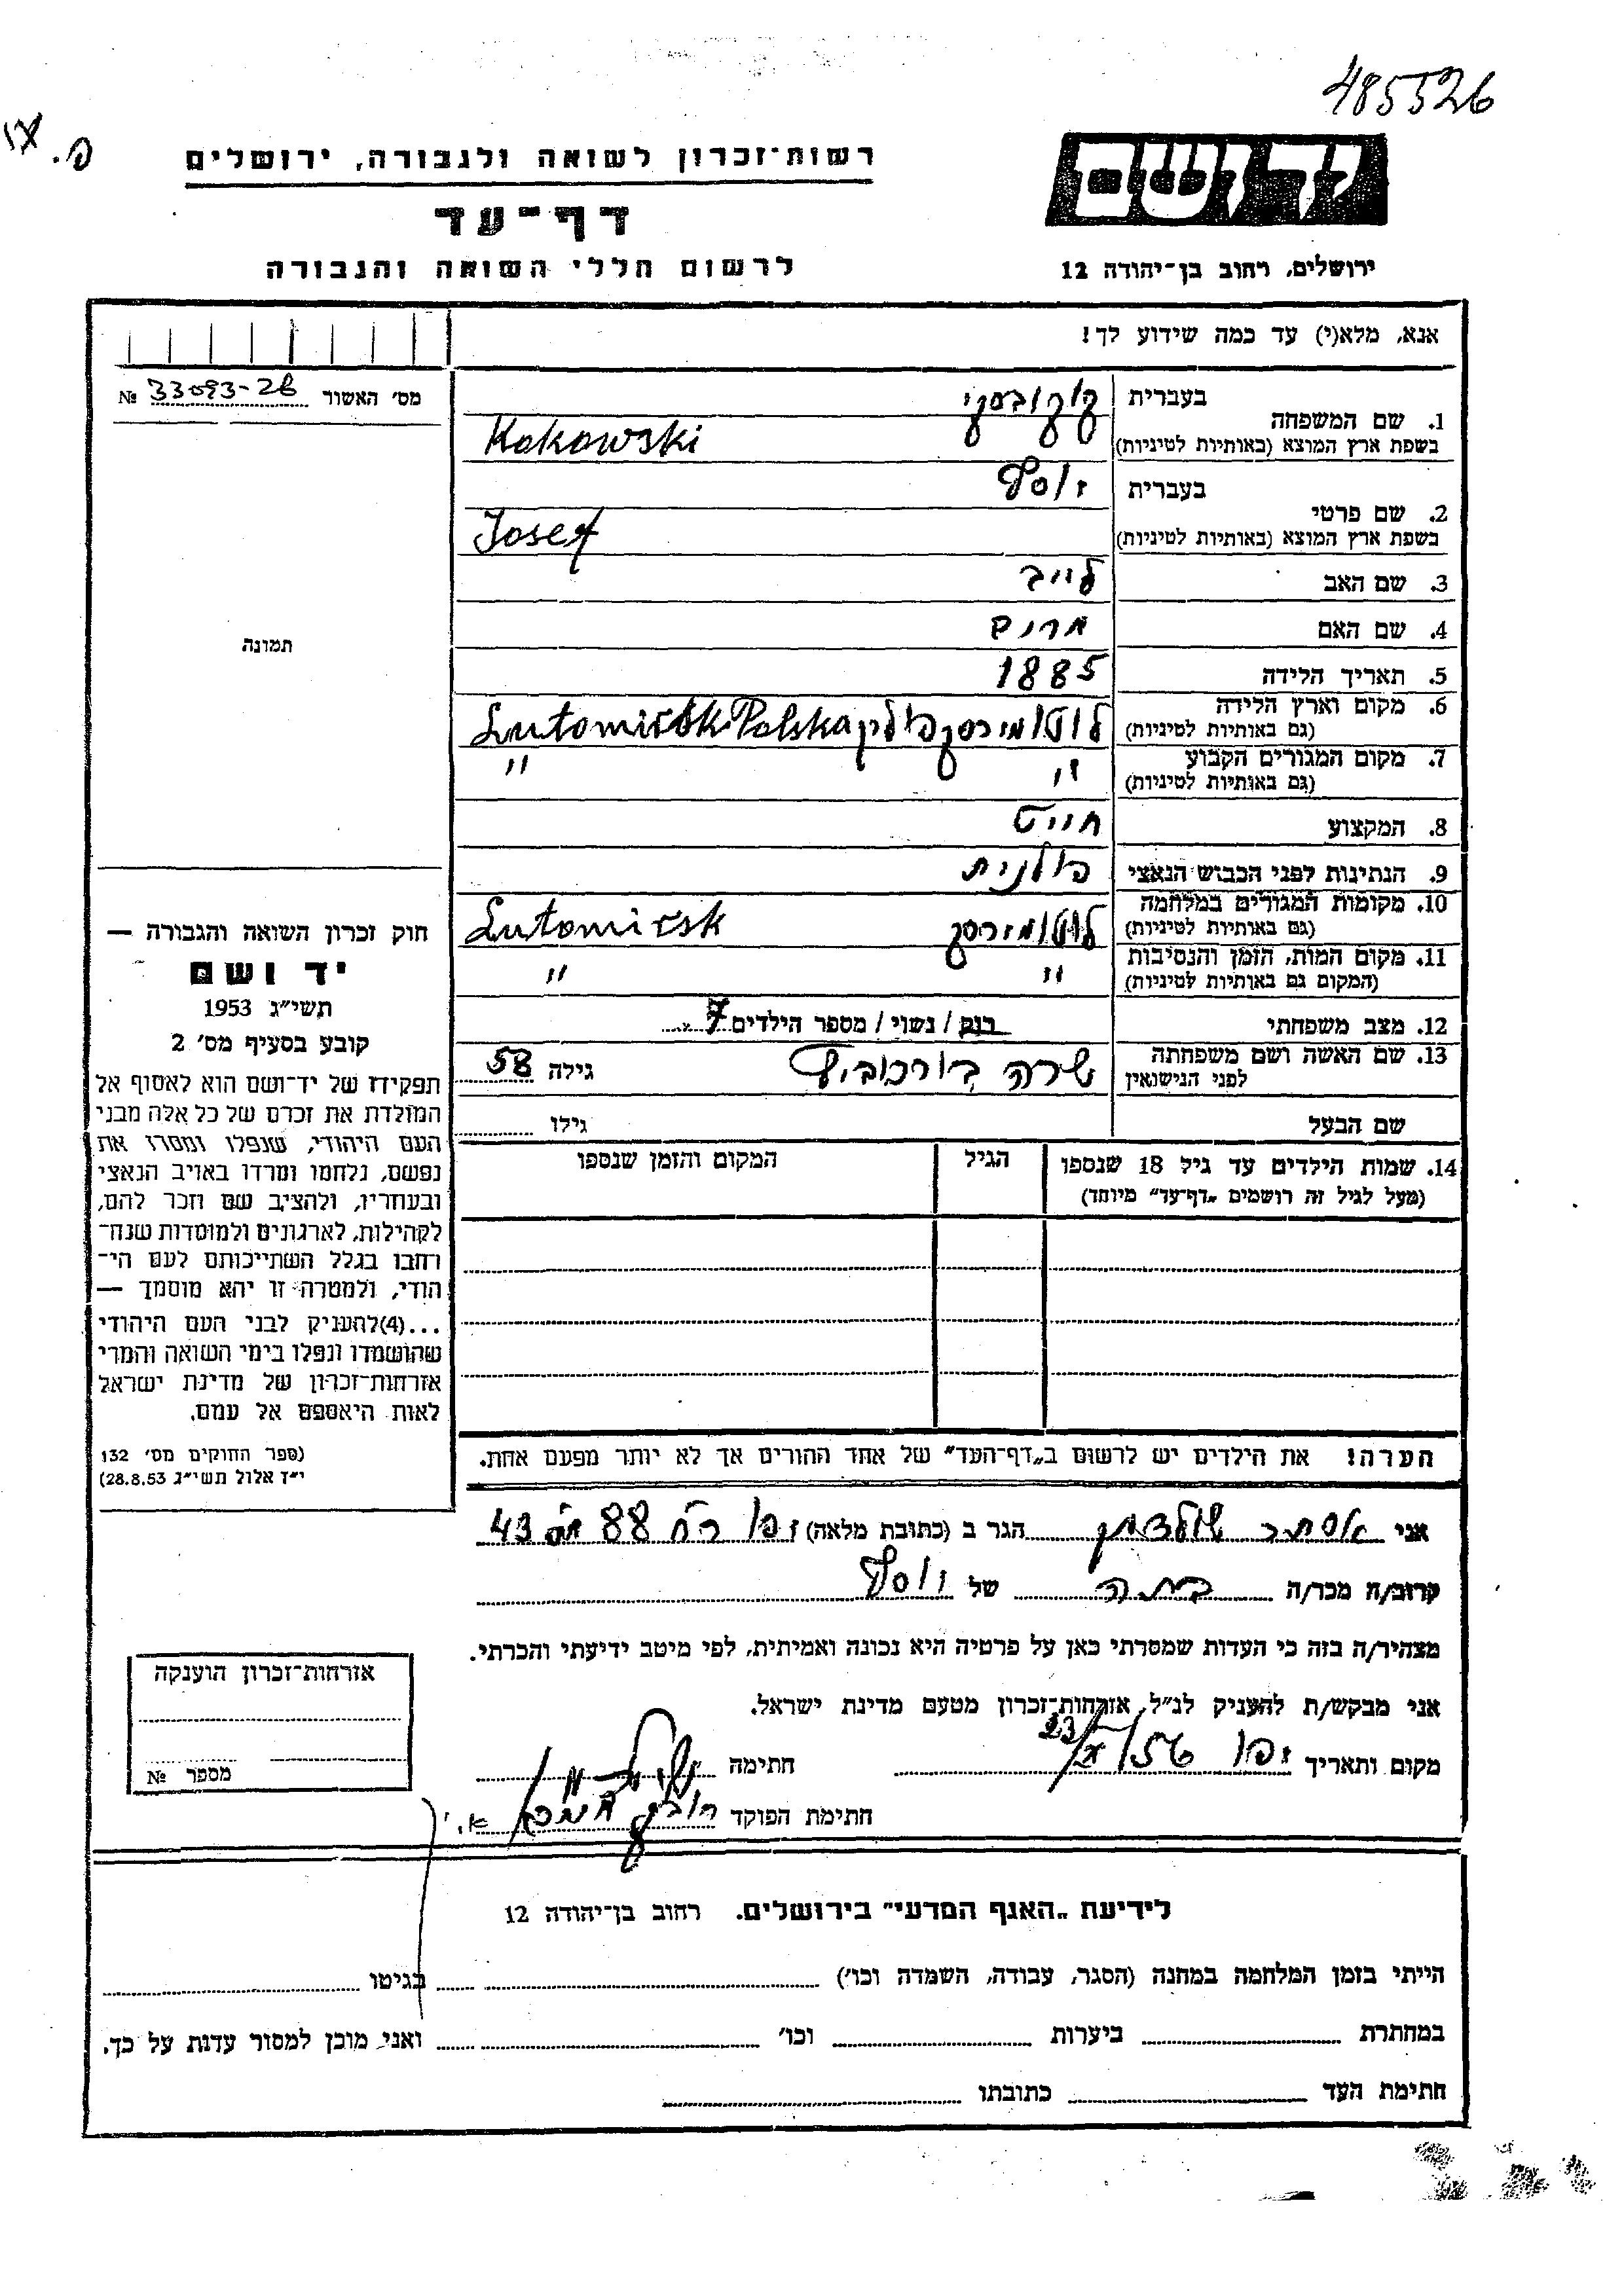 485526
רשות־זכרון לשואה ולגבורה, ירושלים
יד ושם
דף־עד
לרשום חללי השואה והגבורה
ירושלים, רחוב בן־יהודה 12
אנא, מלא(י) עד כמה שידוע לך!
מס' האשור № 33093-26
1. שם המשפחה בעברית קוקובסקי
בשפת ארץ המוצא (באותיות לטיניות) Kokowski
2. שם פרטי בעברית יוסף
בשפת ארץ המוצא (באותיות לטיניות) Josef
3. שם האב לייב
4. שם האם מרים
תמונה
5. תאריך הלידה 1885
6. מקום וארץ הלידה (גם באותיות לטיניות) לוטומירסק פולין Lutomirsk Polska
7. מקום המגורים הקבוע (גם באותיות לטיניות) " "
8. המקצוע חייט
9. הנתינות לפני הכבוש הנאצי פולנית
10. מקומות המגורים במלחמה (גם באותיות לטיניות) לוטומירסק Lutomirsk
11. מקום המות, הזמן והנסיבות (המקום גם באותיות לטיניות) " "
12. מצב משפחתי רוק / נשוי / מספר הילדים 7
13. שם האשה ושם משפחתה לפני הנישואין שרה גילה 58
שם הבעל גילו
14. שמות הילדים עד גיל 18 שנספו הגיל המקום והזמן שנספו
(מעל לגיל זה רושמים „דף־עד" מיוחד)
חוק זכרון השואה והגבורה —
יד ושם
תשי"ג 1953
קובע בסעיף מס' 2
תפקידו של יד־ושם הוא לאסוף אל
המולדת את זכרם של כל אלה מבני
העם היהודי, שנפלו ומסרו את
נפשם, נלחמו ומרדו באויב הנאצי
ובעוזריו, ולהציב שם וזכר להם,
לקהילות, לארגונים ולמוסדות שנח־
רחבו בגלל השתייכותם לעם הי־
הודי, ולמטרה זו יהא מוסמך —
...(4)להעניק לבני העם היהודי
שהושמדו ונפלו בימי השואה והמרי
אזרחות־זכרון של מדינת ישראל
לאות היאספם אל עמם.
(ספר החוקים מס' 132
י"ז אלול תשי"ג 28.8.53)
הערה! את הילדים יש לרשום ב„דף־העד" של אחד ההורים אך לא יותר מפעם אחת.
אני אסתר הגר ב (כתובת מלאה) יפו רח 88 43
קרוב/ה מכר/ה בתה של יוסף
מצהיר/ה בזה כי העדות שמסרתי כאן על פרטיה היא נכונה ואמיתית, לפי מיטב ידיעתי והכרתי.
אני מבקש/ת להעניק לנ"ל, אזרחות־זכרון מטעם מדינת ישראל.
מקום ותאריך יפו 23/X/56 חתימה
חתימת הפוקד
אזרחות־זכרון הוענקה
מספר №
לידיעת „האגף המדעי" בירושלים. רחוב בן־יהודה 12
הייתי בזמן המלחמה במחנה (הסגר, עבודה, השמדה וכו') בגיטו
במחתרת ביערות וכו' ואני, מוכן למסור עדות על כך.
חתימת העד כתובתו